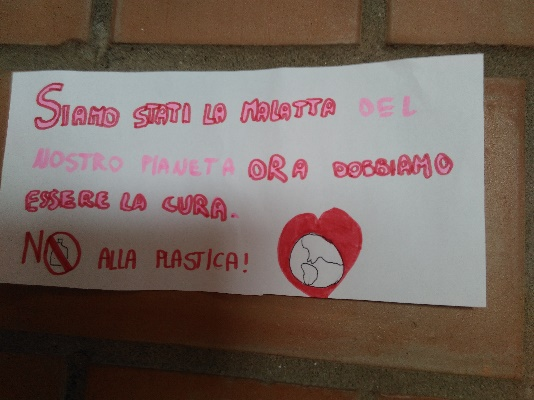 SIAMO STATI LA MALATTA DEL
NOSTRO PIANETA ORA DOBBIAMO
ESSERE LA CURA.
NO ALLA PLASTICA!